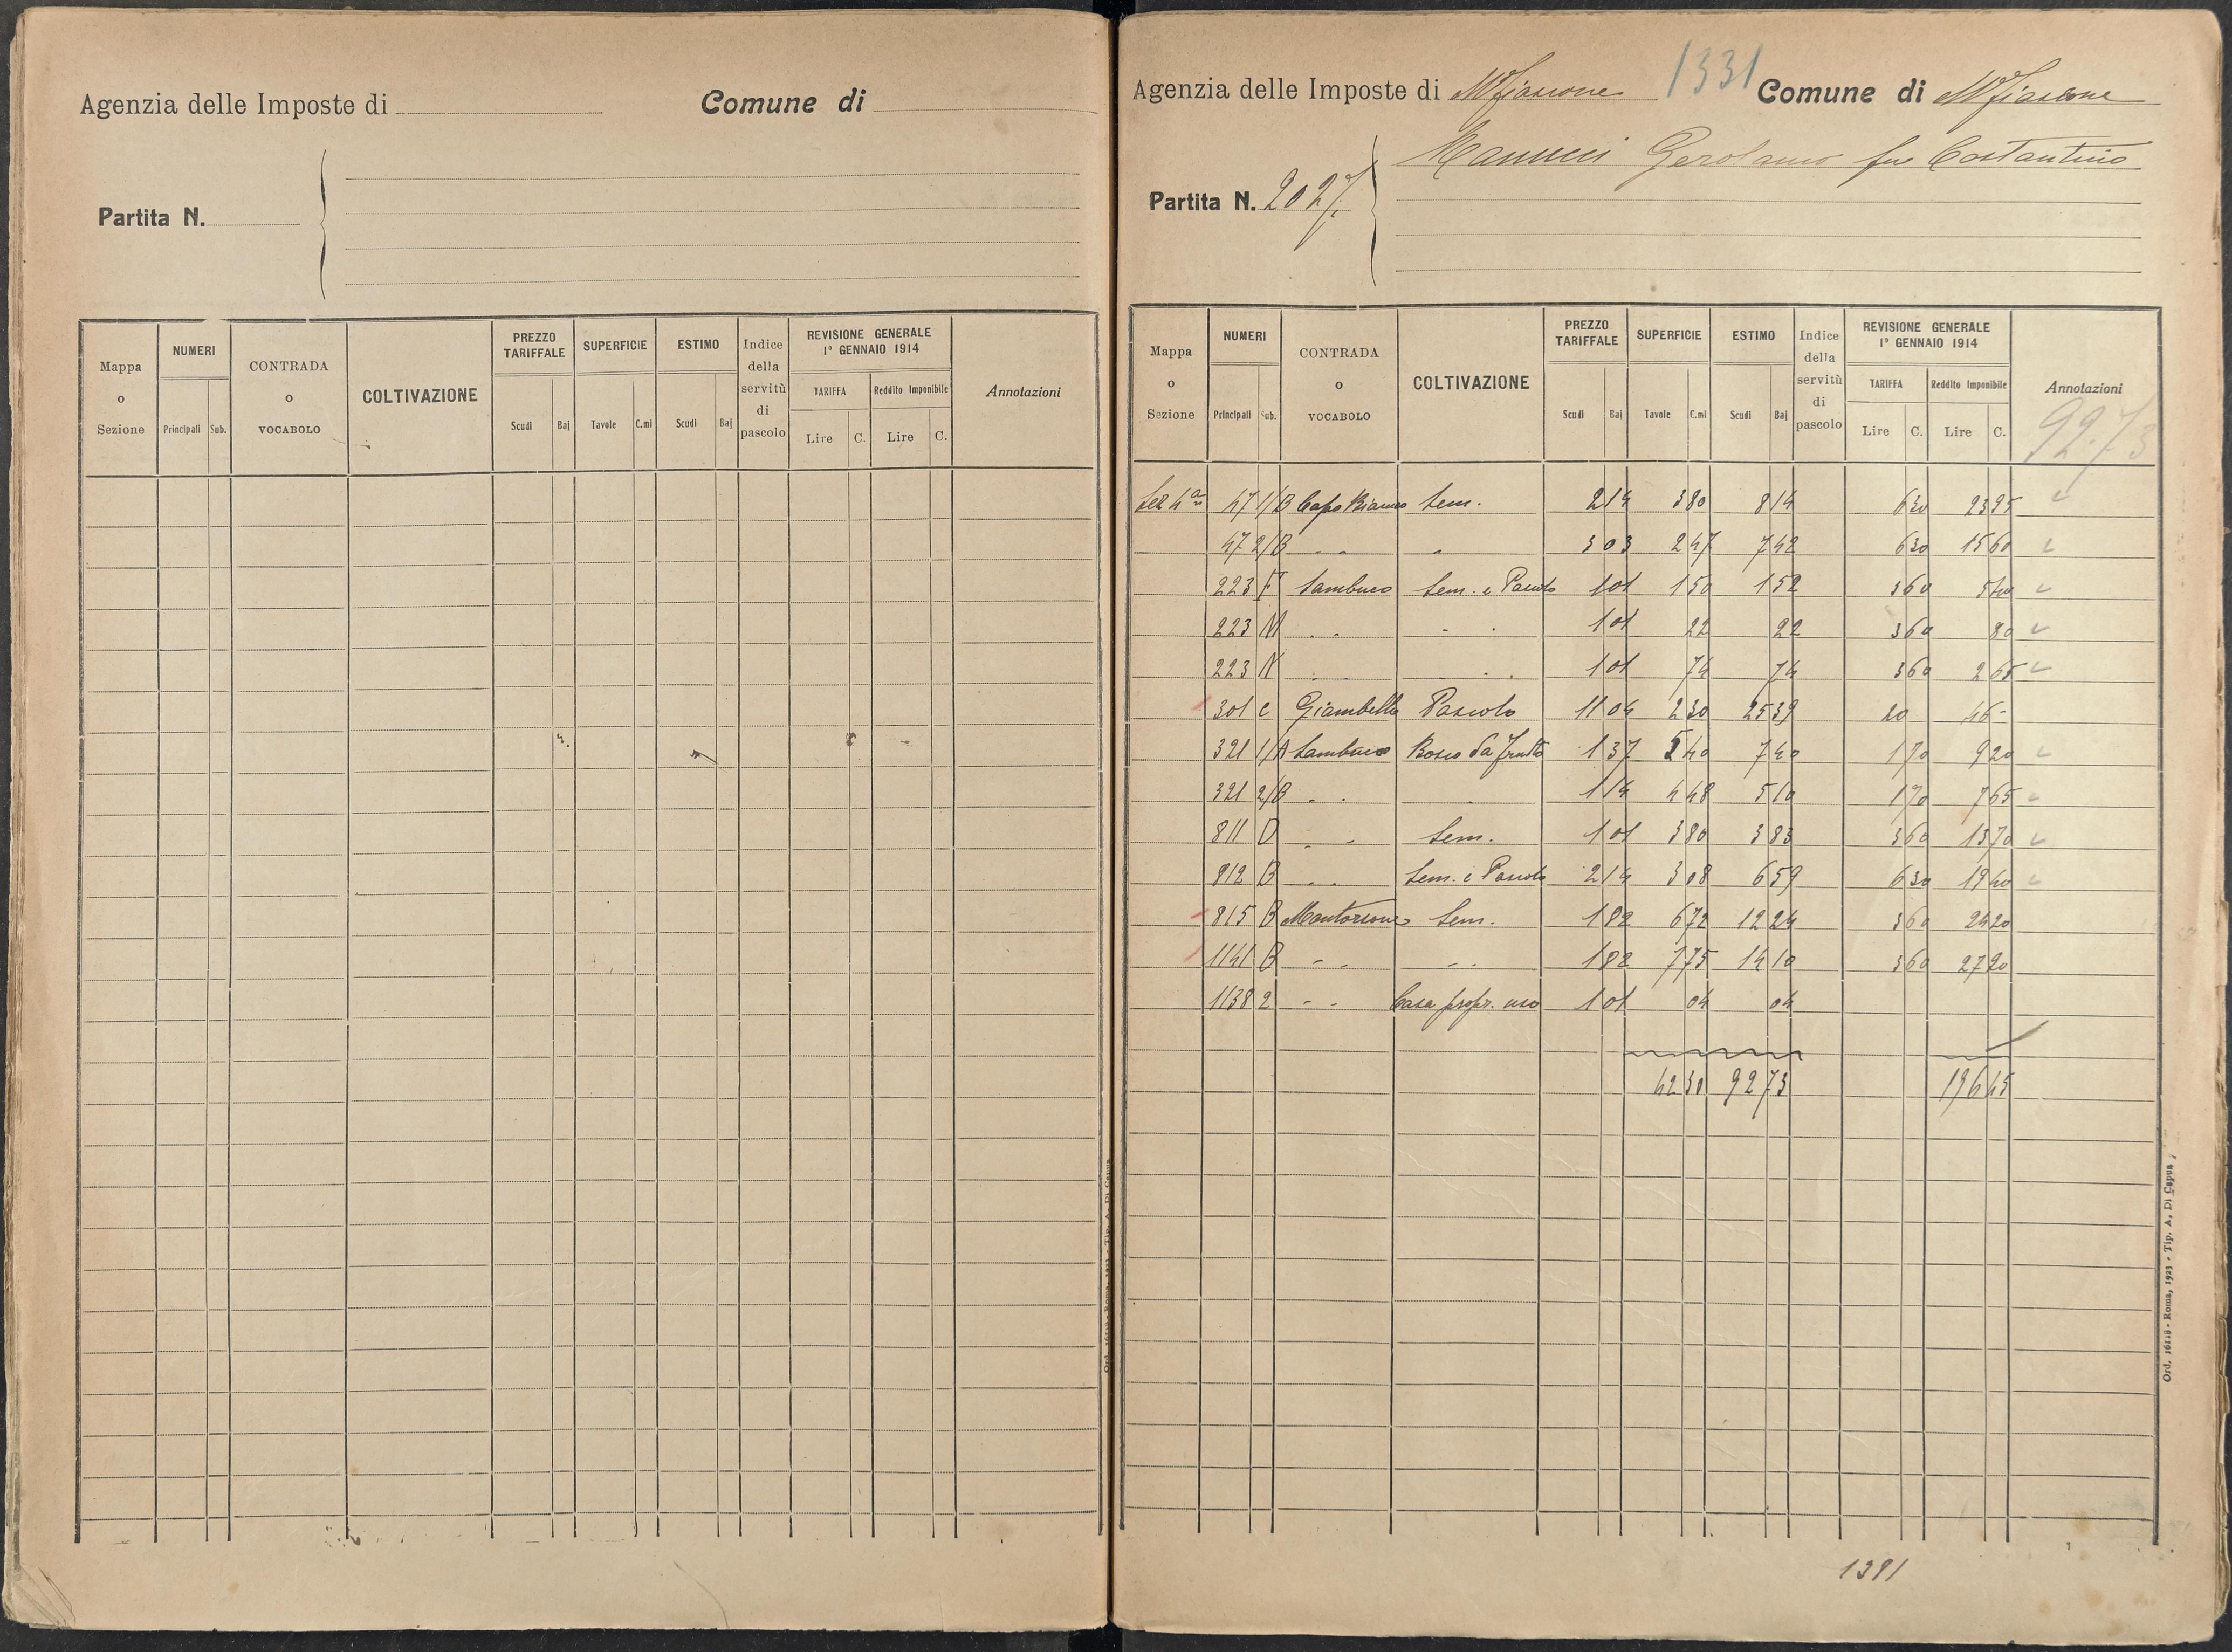 Agenzia delle Imposte di
Comune di
Partita N.
Mappa o Sezione | NUMERI Principali Sub. | CONTRADA o VOCABOLO | COLTIVAZIONE | PREZZO TARIFFALE Scudi Baj | SUPERFICIE Tavole C.mi | ESTIMO Scudi Baj | Indice della servitù di pascolo | REVISIONE GENERALE 1º GENNAIO 1914 TARIFFA Lire C. Reddito Imponibile Lire C. | Annotazioni
1331
Agenzia delle Imposte di Mfiascone Comune di Mfiascone
Mannucci Gerolamo fu Costantino
Partita N. 2027
Mappa o Sezione | NUMERI Principali Sub. | CONTRADA o VOCABOLO | COLTIVAZIONE | PREZZO TARIFFALE Scudi Baj | SUPERFICIE Tavole C.mi | ESTIMO Scudi Baj | Indice della servitù di pascolo | REVISIONE GENERALE 1º GENNAIO 1914 TARIFFA Lire C. Reddito Imponibile Lire C. | Annotazioni
92.73
Sez 4ª 47 1/B Capo Bianco Sem. 2 14 3 80 8 14 6 30 23 95
47 2/B " " " 3 03 2 47 7 42 6 30 15 60
223 F Sambuco Sem. e Pascolo 1 01 1 50 1 52 3 60 5 40
223 M " " " " 1 01 22 22 3 60 80
223 N " " " " 1 01 74 74 3 60 2 65
301 C Giambella Pascolo 11 04 2 30 25 39 20 46 -
321 1/A Sambuco Bosco da frutto 1 37 5 40 7 40 1 70 9 20
321 2/B " " " 1 14 4 48 5 10 1 70 7 65
811 D " " Sem. 1 01 3 80 3 83 3 60 13 70
812 B " " Sem. e Pascolo 2 14 3 08 6 59 6 30 19 40
815 B Mantorsone Sem. 1 82 6 72 12 24 3 60 24 20
1141 B " " " " 1 82 7 75 14 10 3 60 27 90
1138 2 " " Casa propr. uso 1 01 04 04
42 30 92 73 196 45
Ord. 16118 - Roma, 1923 - Tip. A. Di Capua
1391